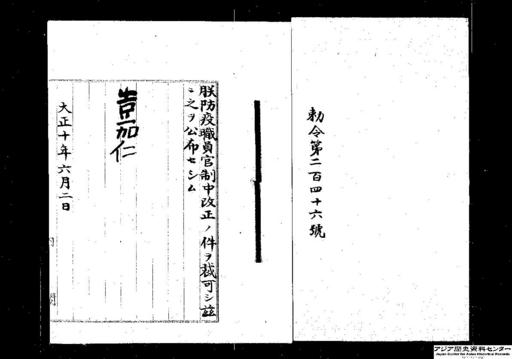 勅令第二百四十六號
朕防疫職員官制中改正ノ件ヲ裁可シ茲
ニ之ヲ公布セシム
嘉仁
大正十年六月二日
内 閣
アジア歴史資料センター
Japan Center for Asian Historical Records